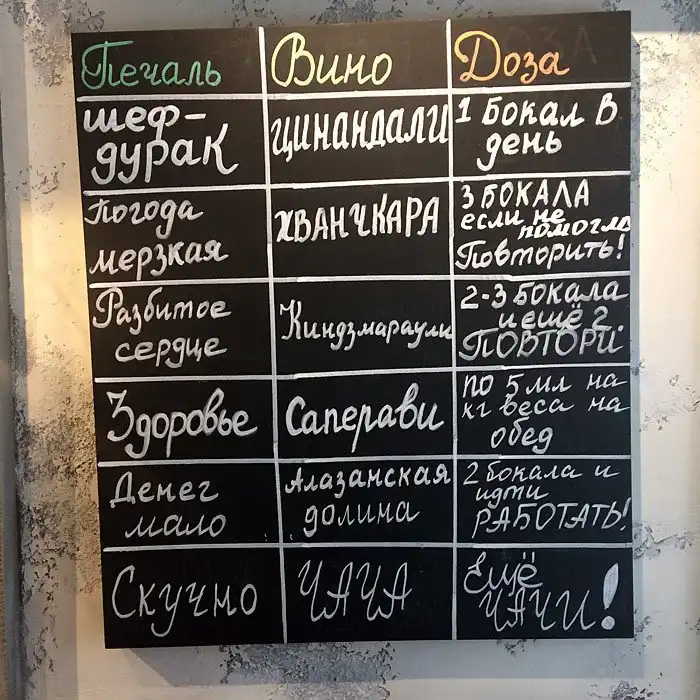 Печаль Вино Доза
шеф-
дурак
ЦИНАНДАЛИ
1 БОКАЛ В
день
Погода
мерзкая
ХВАНЧКАРА
3 БОКАЛА
если не
помогло
Повторить!
Разбитое
сердце
Киндзмараули
2-3 БОКАЛА
и ещё 2.
ПОВТОРИ
Здоровье
Саперави
по 5 мл на
кг веса на
обед
Денег
мало
Алазанская
долина
2 бокала и
идти
РАБОТАТЬ!
Скучно
ЧАЧА
Ещё
ЧАЧИ!